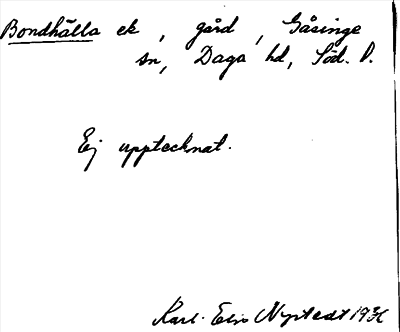 Bondhälla ek, gård, Gåsinge
sn, Daga hd, Söd.
Ej upptecknat.
Karl-Elis Nystedt